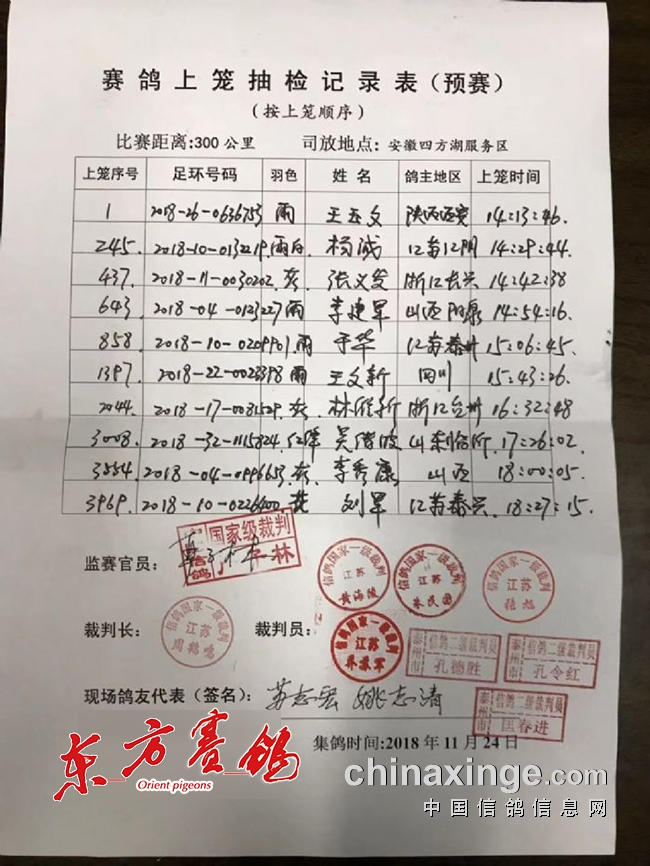 赛鸽上笼抽检记录表（预赛）
（按上笼顺序）
比赛距离:300公里 司放地点：安徽四方湖服务区
上笼序号 足环号码 羽色 姓名 鸽主地区 上笼时间
1 2018-26-0636753 雨 王玉文 陕西西安 14:13:46.
245. 2018-10-0132219. 雨白 杨诚 江苏江阴 14:29:44.
437. 2018-11-0030202. 灰. 张义发 浙江长兴 14:42:38
643. 2018-04-0123227 雨 李建军 山西阳泉 14:54:16.
858 2018-10-0209901. 雨 于华 江苏泰州 15:06:45.
1397. 2018-22-0023398 雨 王文新 四川 15:43:26.
2044. 2018-17-0081529. 灰. 林 新 浙江台州 16:32:48
3008. 2018-32-1115824. 红绛 吴 山东临沂. 17:26:02
3554. 2018-04-0996653. 灰. 李秀康 山西 18:00:05.
3969. 2018-10-0226400. 花 刘军 江苏泰兴. 18:27:15.
监赛官员： 国家级裁判 信鸽 林
信鸽国家一级裁判 江苏 黄海陵
信鸽国家一级裁判 江苏 朱民图
信鸽国家一级裁判 江苏 陆旭
裁判长： 信鸽国家一级裁判 江苏 周鹤鸣
裁判员： 信鸽国家一级裁判 江苏 军
泰州市 信鸽二级裁判员 孔德胜
泰州市 信鸽二级裁判员 孔令红
现场鸽友代表（签名）： 苏志宏 姚志清
泰州市 信鸽二级裁判员 匡春进
集鸽时间:2018年11月24日
东方赛鸽
Orient pigeons
chinaxinge.com
中国信鸽信息网